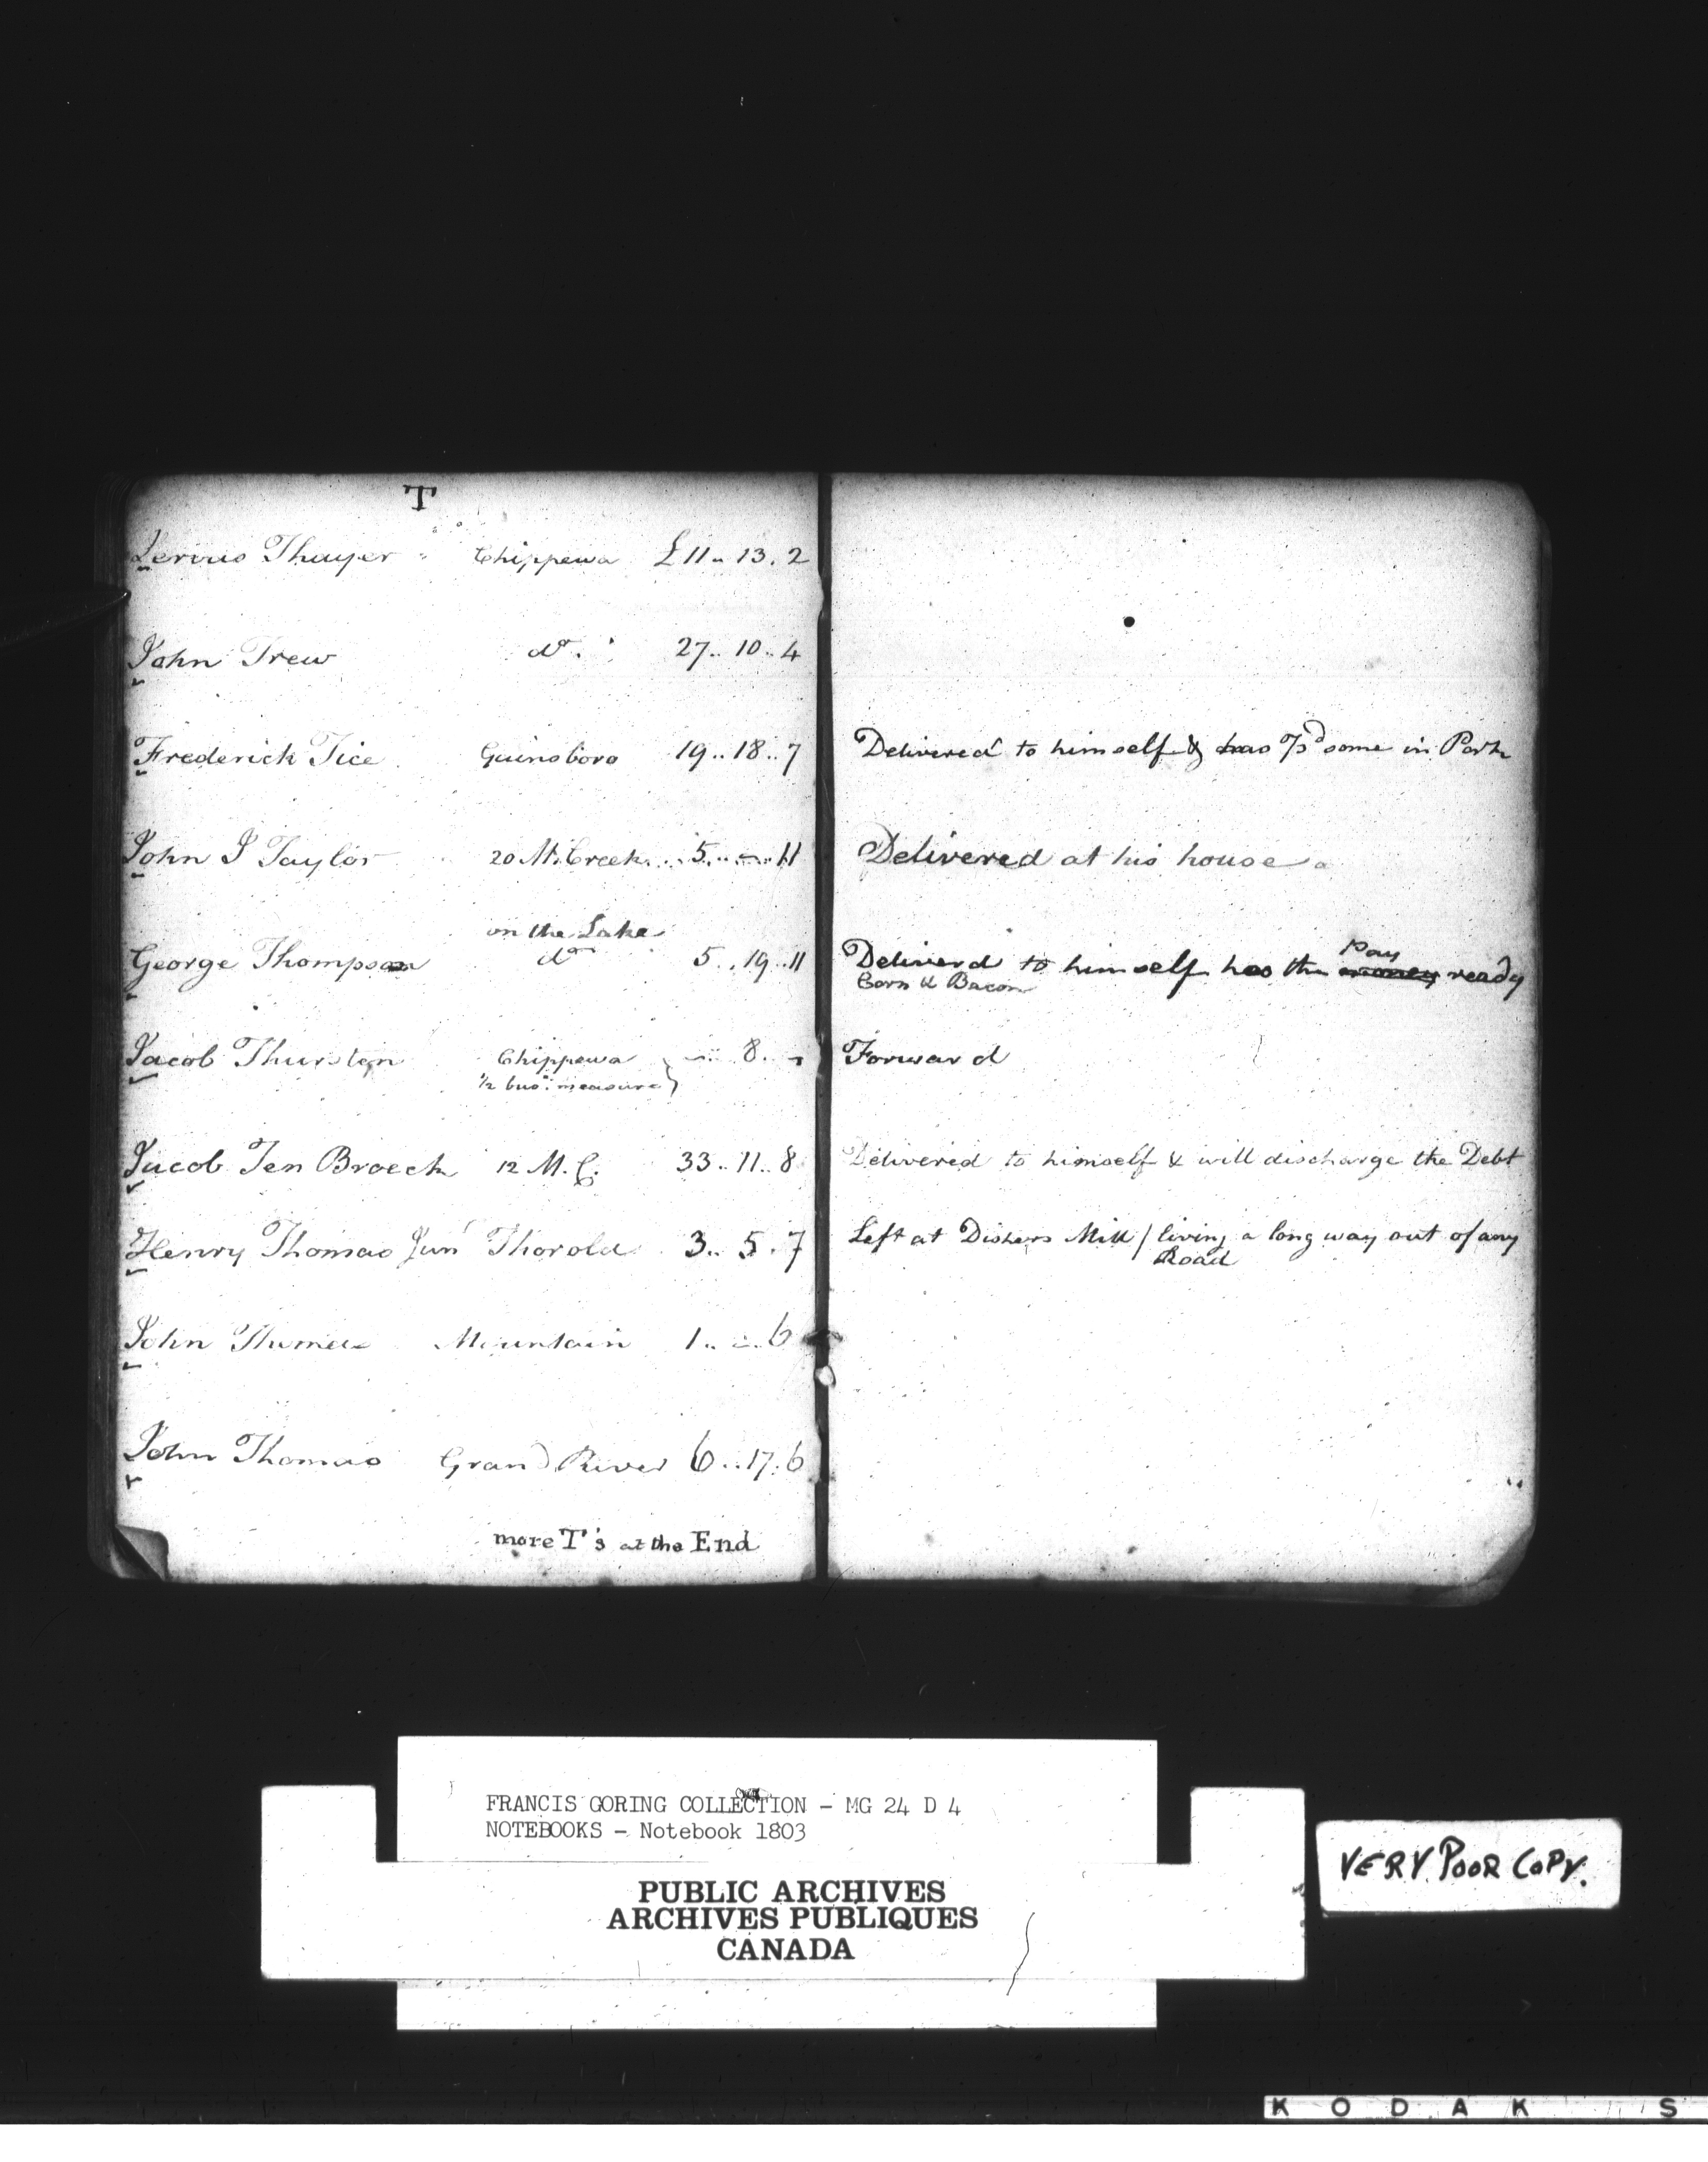 T
Zervus Thayer " Chippewa £ 11 .. 13 . 2
John Trew do. 27 .. 10 .. 4
Frederick Tice Gainsboro 19 .. 18 .. 7 Delivered to himself & has pd some in Pork
John J Taylor 20 M. Creek .. 5 .. - .. 11 Delivered at his house
on the Lake
George Thompson do 5 .. 19 .. 11 Deliverd to himself has the money Pay ready
Corn & Bacon
Jacob Thurston Chippewa } - .. 8 . - Forward
1/2 bus: measure
Jacob Ten Broeck 12 M. C. 33 .. 11 .. 8 Delivered to himself & will discharge the Debt
Henry Thomas Junr Thorold 3 .. 5 . 7 Left at Dishers Mill / living a long way out of any
Road
John Thomas Mountain 1 .. - .. 6
John Thomas Grand River 6 .. 17 . 6
more T's at the End
FRANCIS GORING COLLECTION - MG 24 D 4
NOTEBOOKS - Notebook 1803
PUBLIC ARCHIVES
ARCHIVES PUBLIQUES
CANADA
VERY POOR COPY.
KODAK S